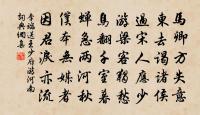 馬卿方失意
東去謁諸侯
過宋人應少
游梁客獨愁
鳥翻千室暮
蟬急兩河秋
僕本無媒者
因君淚亦流
李端送王少府游河南
詞典網集